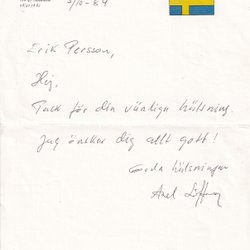 5/10-84
Erik Persson,
Hej,
Tack för din vänliga hälsning.
Jag önsker dig allt gott!
Goda hälsningar
Axel